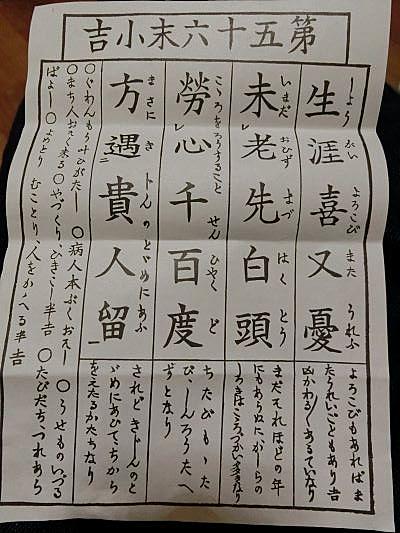 第五十六末小吉
生涯喜又憂
しようがいよろこびまたうれふ
よろこびもあればま
たうれいごともあり吉
凶かわる〴〵あるていなり
未レ老先白頭
いまだおひずまづはくとう
まだそれほどの年
にもあらぬに、かしらの
しろきはこころづかひ多きなり
勞レ心千百度
こゝろをろうすることせんひやくど
ちたびもゝた
び、しんろうたへ
ずとなり
方遇二貴人留一
まさにきトんのとゞめにあふ
されどきじんのと
ゞめにあひてちから
をえたるかたちなり
〇ぐわんもう叶ひがたし 〇病人本ぶくおそし 〇うせものいづる
〇まち人おそく来る 〇やづくり、ひきこし半吉 〇たびだちつれあら
ばよし 〇よめとり むことり、人をかゝへる半吉